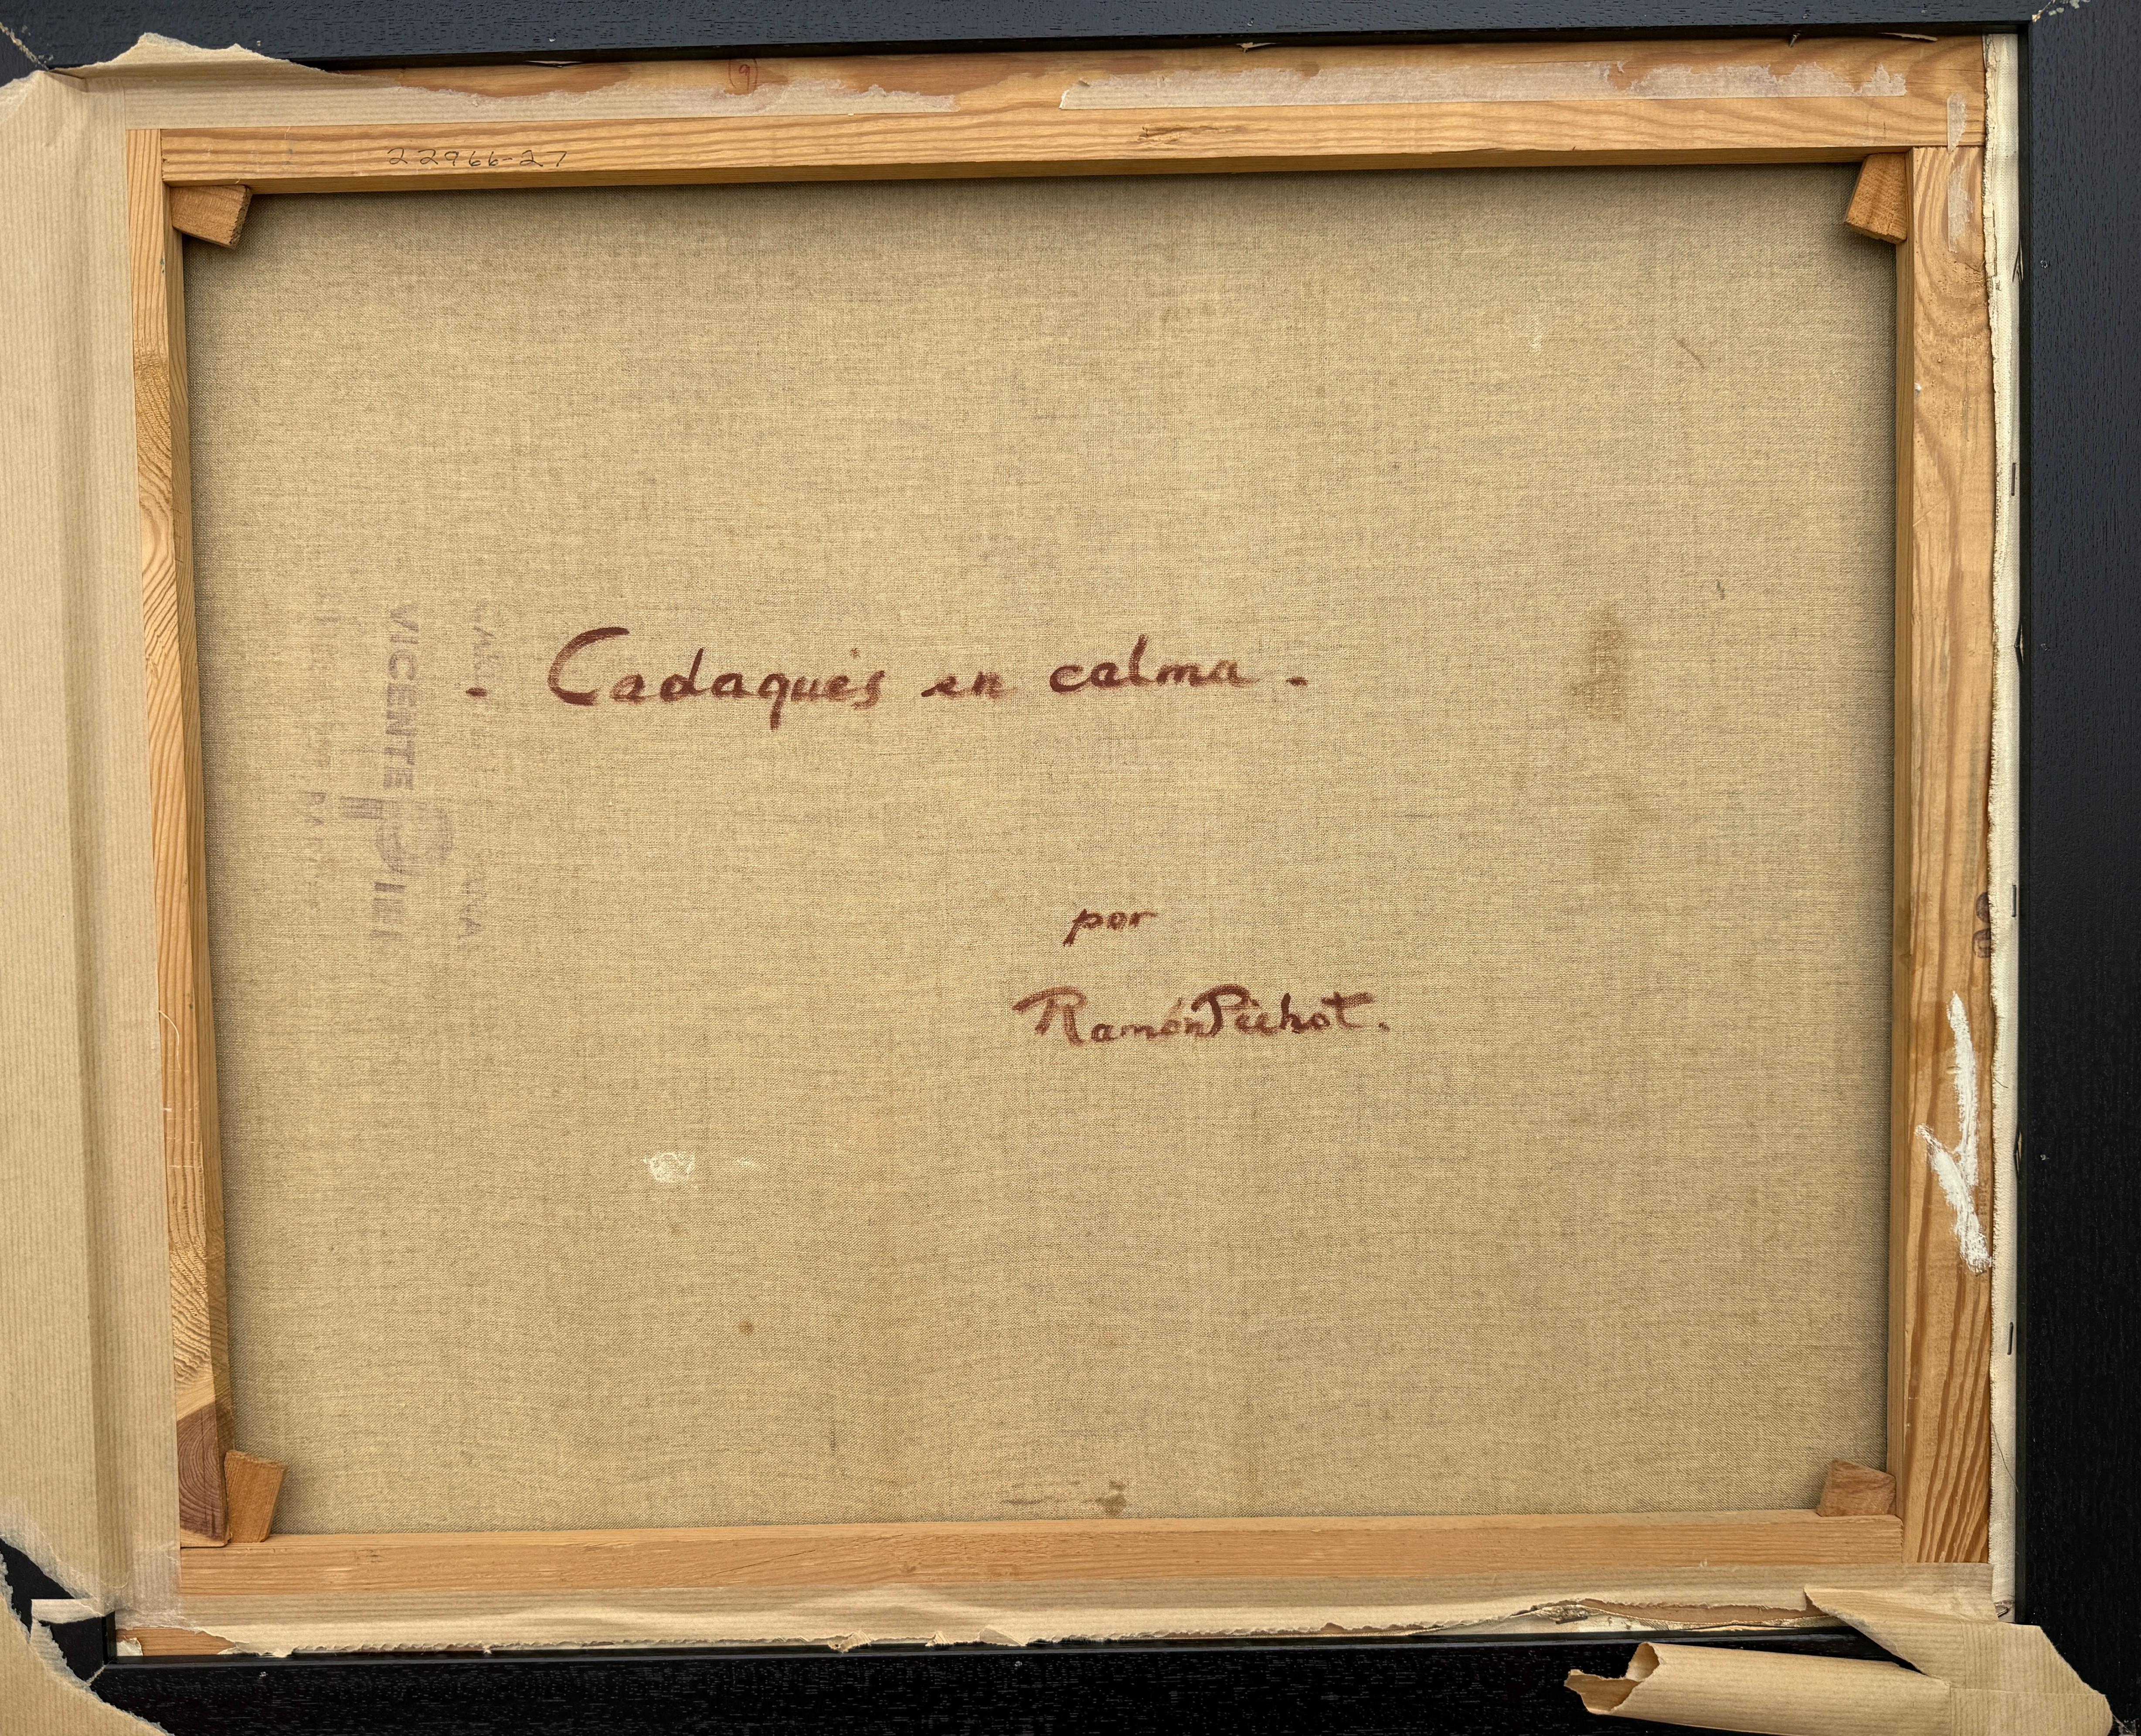 (9)
22966-27
- Cadaqués en calma -
por
Ramón Pichot.
VICENTE